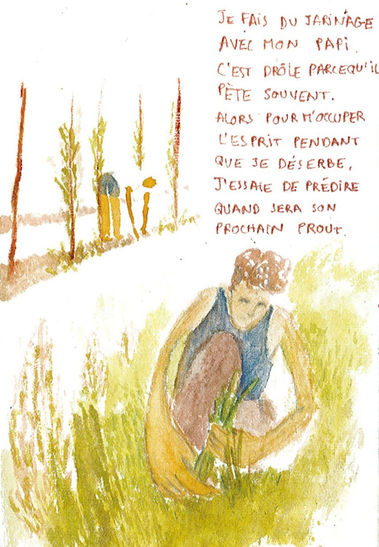 JE FAIS DU JARINAGE
AVEC MON PAPI.
C'EST DRÔLE PARCEQU'IL
PÈTE SOUVENT.
ALORS POUR M'OCCUPER
L'ESPRIT PENDANT
QUE JE DÉSERBE,
J'ESSAIE DE PRÉDIRE
QUAND SERA SON
PROCHAIN PROUT.